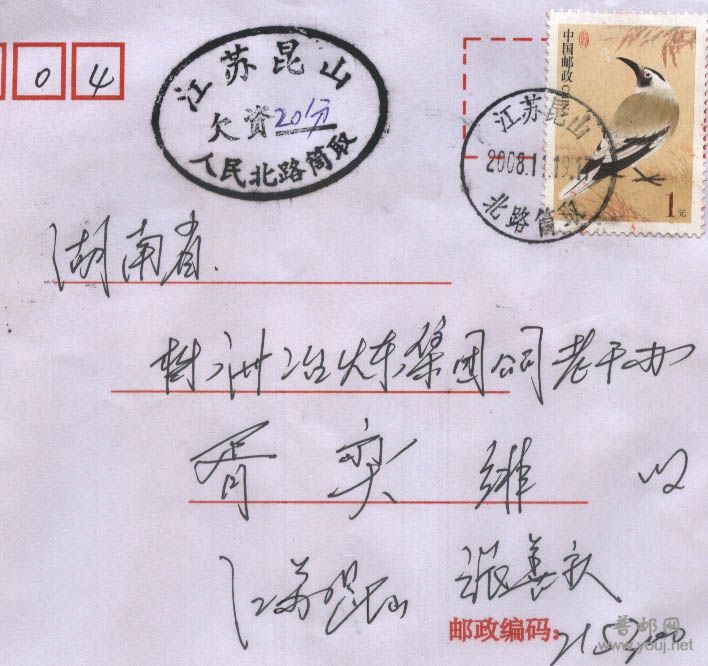 04
江苏昆山
欠资20分
人民北路筒取
中国邮政 CHINA
1元
江苏昆山
2008.11.19.17
北路筒取
湖南省
株洲冶炼集团公司老干办
胥奕雄 收
江苏昆山 张善
邮政编码: 215300
普邮网
www.youj.net